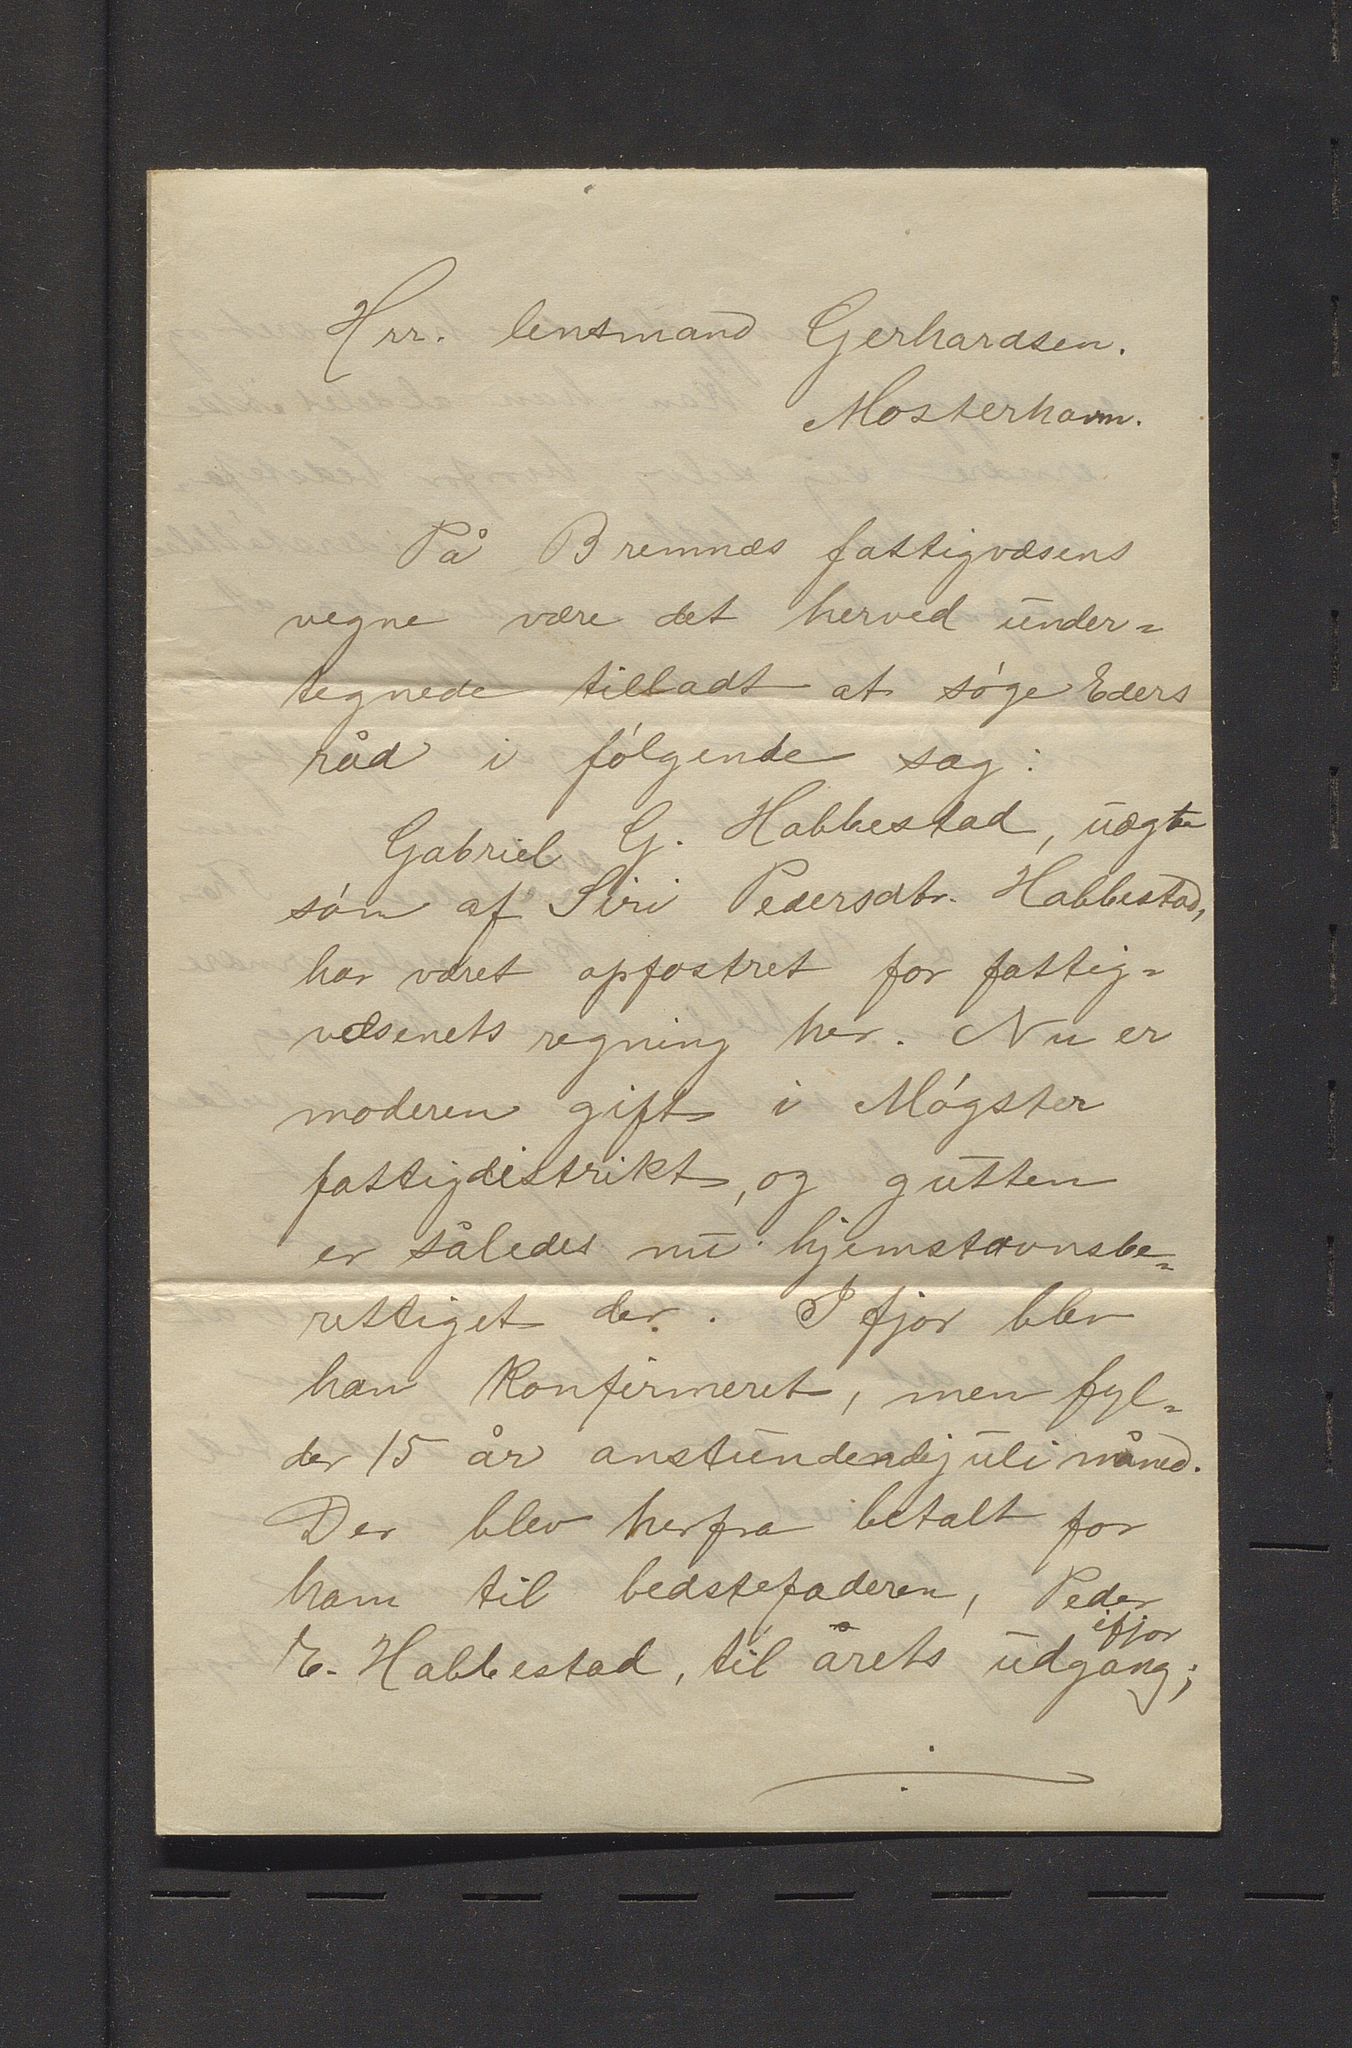 Hrr. lensmand Gerhardsen.
Mosterhavn.
På Bremnæs fattigvæsens
vegne være det herved under=
tegnede tilladt at søge Eders
råd i følgende sag:
Gabriel G. Habbestad, uægte
søn af Siri Pedersdtr. Habbestad,
har været opfostret for fattig=
væsenets regning her. Nu er
moderen gift i Møgster
fattigdistrikt, og gutten
er således nu hjemstavnsbe=
rettiget der. I fjor blev
han konfirmeret, men fyl=
der 15 år anstundende juli måned.
Der blev herfra betalt for
ham til bedstefaderen, Peder
ifjor
E. Habbestad, til årets udgang;